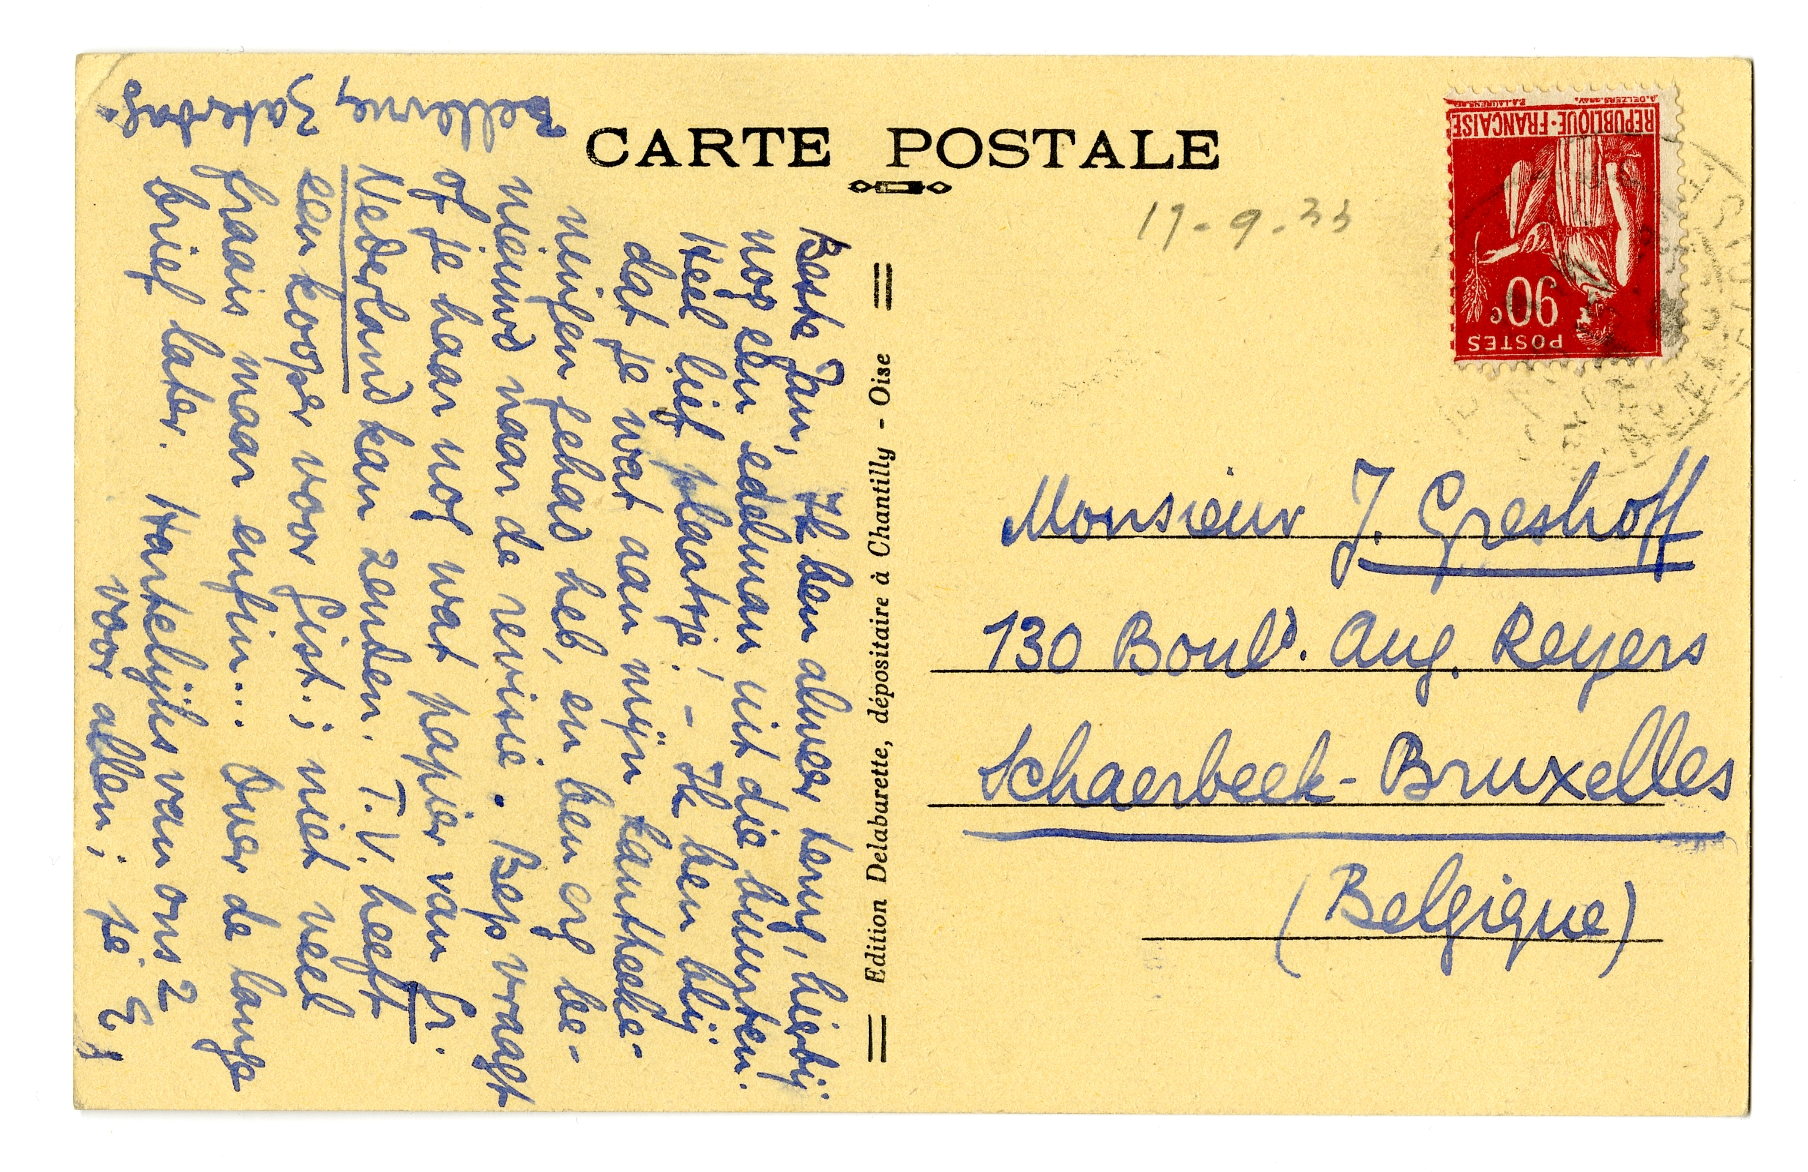 CARTE POSTALE
17-9-33
RÉPUBLIQUE·FRANÇAISE
90c
POSTES
Bellevue, Zaterdag.
Beste Jan, Ik ben alweer terug, hierbij
nog een edelman uit die buurten.
Heel lief plaatsje! - Ik ben blij
dat je wat aan mijn kantteeke-
ningen gehad heb, en ben erg be-
nieuwd naar de revisie. Bep vraagt
of je haar nog wat papier van Gr.
Nederland kan zenden. T.V. heeft
een kooper voor Gist.; niet veel
fraais maar enfin... Over de lange
brief later. Hartelijks van ons 2
voor allen; je E.
Edition Delabarette, dépositaire à Chantilly - Oise
Monsieur J. Greshoff
130 Bould. Aug. Reyers
Schaerbeek-Bruxelles
(Belgique)